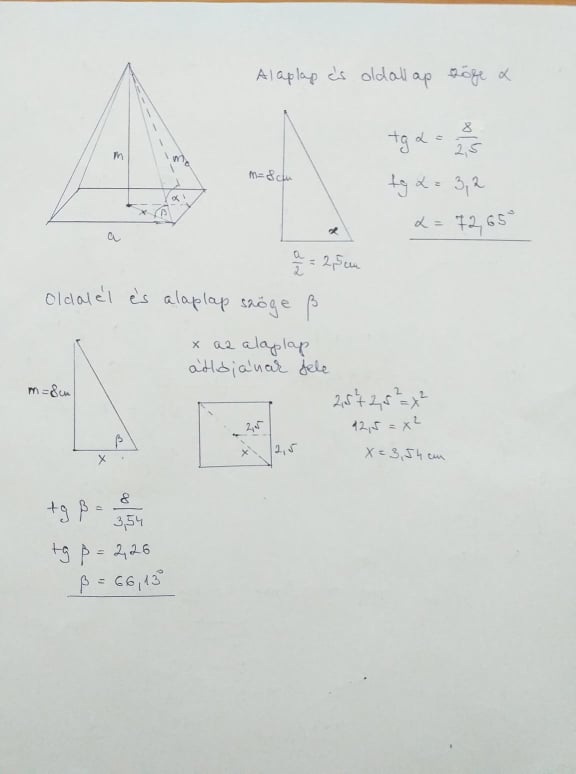 Alaplap és oldallap szöge α
m
mo
α
x
β
a
m=8cm
α
a/2 = 2,5cm
tg α = 8/2,5
tg α = 3,2
α = 72,65°
Oldalél és alaplap szöge β
m=8cm
β
x
x az alaplap
átlójának fele
2,5
x
2,5
2,5²+2,5²=x²
12,5 = x²
x=3,54 cm
tg β = 8/3,54
tg β = 2,26
β = 66,13°